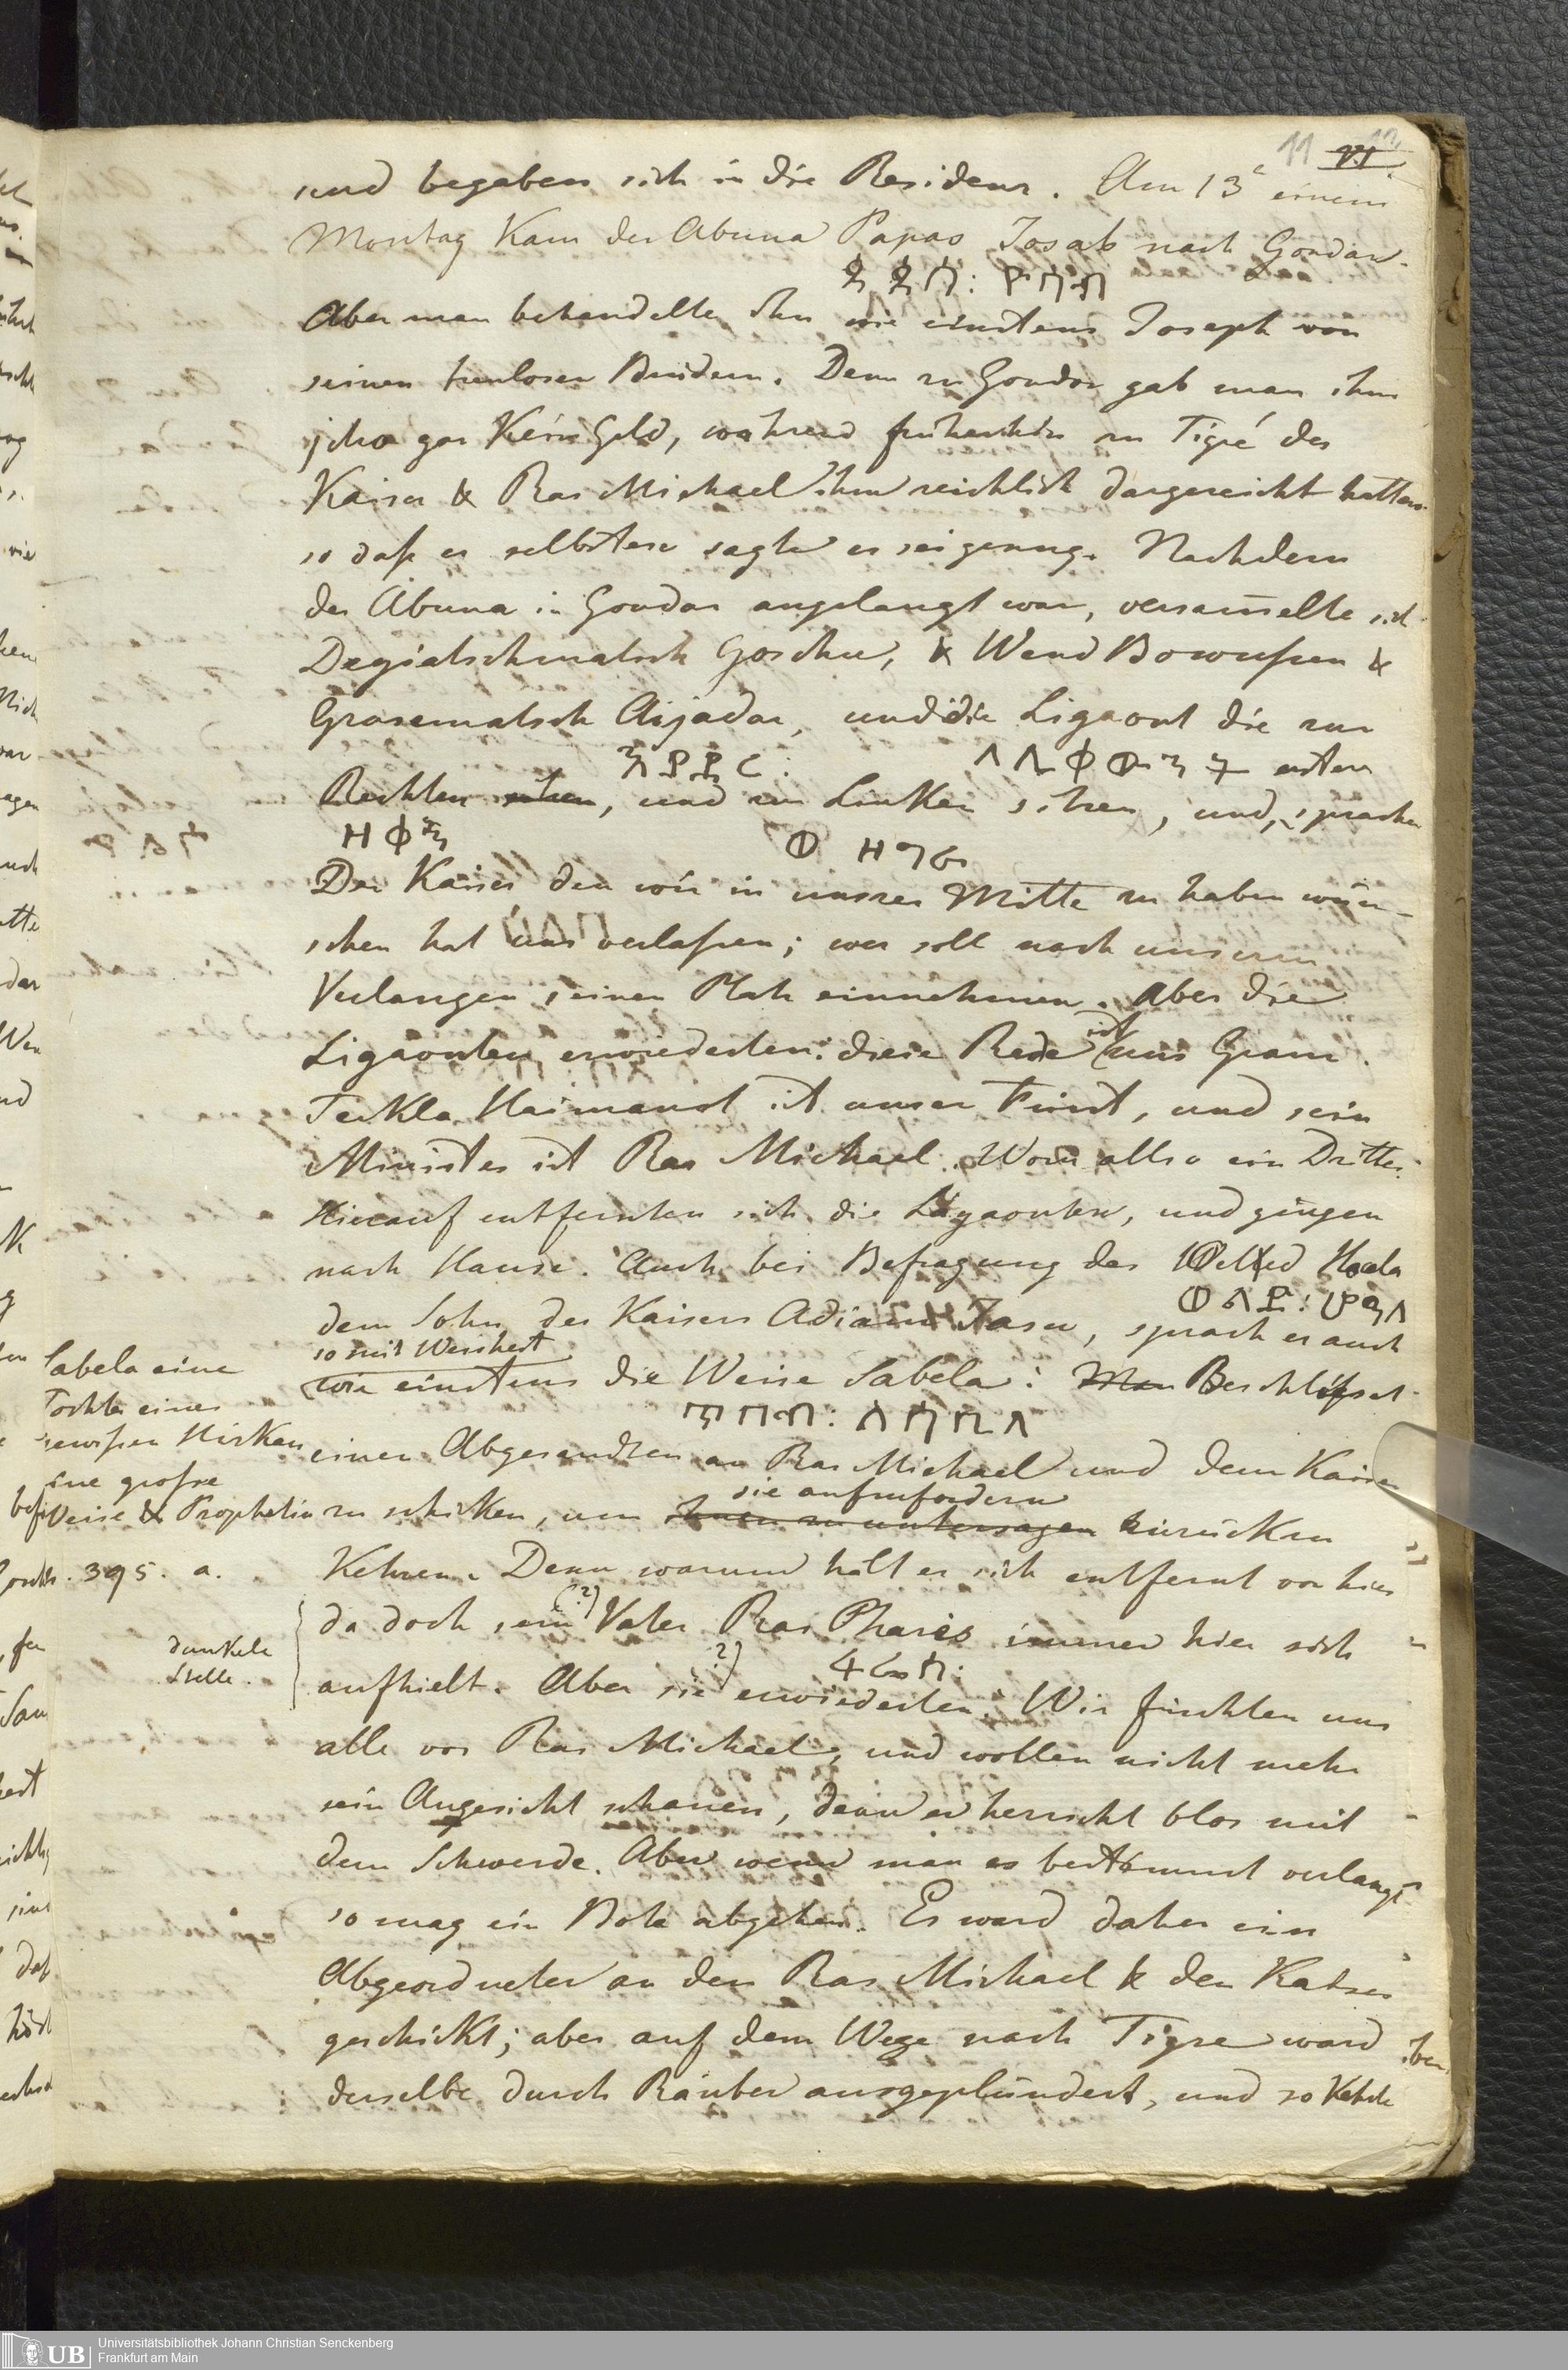 11
und begaben sich in die Residenz. Am 13t einem
Montag Kam der Abuna Papas Josab nach Gondar.
ጳጳስ: ዮሳብ
Aber man behandelte ihn wie einstens Joseph von
seinen treulosen Brüdern. Denn zu Gondar gab man ihm
gar Kein Geld, während früherhin zu Tigré der
Kaiser & Ras Michael ihm reichlich dargereicht hatten
so daß er selbsten sagte es sei genug. Nachdem
der Abuna in Gondar angelangt war, versam̄elte sich
Degiatschmatsch Goschu, & Wend Bowussen &
Grasematsch Aijadar, und die Ligaont die zur
Rechten sitzen, und zur Linken sitzen, und, sprachen
ersten
Der Kaiser, den wir in unsrer Mitte zu haben wün-
schen hat uns verlassen; wer soll nach unserem
Verlangen seinen Platz einnehmen. Aber die
Ligaonten erwiederten: diese Rede ist uns Gram.
Tekla Haimanot ist unser Fürst, und sein
Minister ist Ras Michael. Wozu also ein Dritter.
Hierauf entfernten sich die Ligaonten, und gingen
nach Hause. Auch bei Befragung des Welled Hoala
dem Sohn des Kaisers Adiam Jasu, sprach er auch
so mit Weisheit
wie einstens die Weise Sabela: Man Beschließet
einen Abgesandten an Ras Michael und dem Kaiser
sie aufzufordern
zu schicken, um ihnen zu untersagen zurückzu
Kehren. Denn warum hält er sich entfernt von hier
da doch sein (?) Vater Ras Phares immer hier sich
aufhielt. Aber sie (?) erwiederten: Wir fürchten uns
alle vor Ras Michael, und wollen nicht mehr
sein Angesicht schauen, denn er herrscht blos mit
dem Schwerde. Aber wenn man es bestimmt verlangt
so mag ein Bote abgehen. Es ward daher ein
Abgeordneter an den Ras Michael & den Kaiser
geschickt; aber auf dem Wege nach Tigre ward
derselbe durch Räuber ausgeplündert, und so Kehrte
Sabela eine
Tochter eines
gewissen Hirken
eine grosse
Weise & Prophetin
395. a.
dunkele
Stelle.
UB
Universitätsbibliothek Johann Christian Senckenberg
Frankfurt am Main